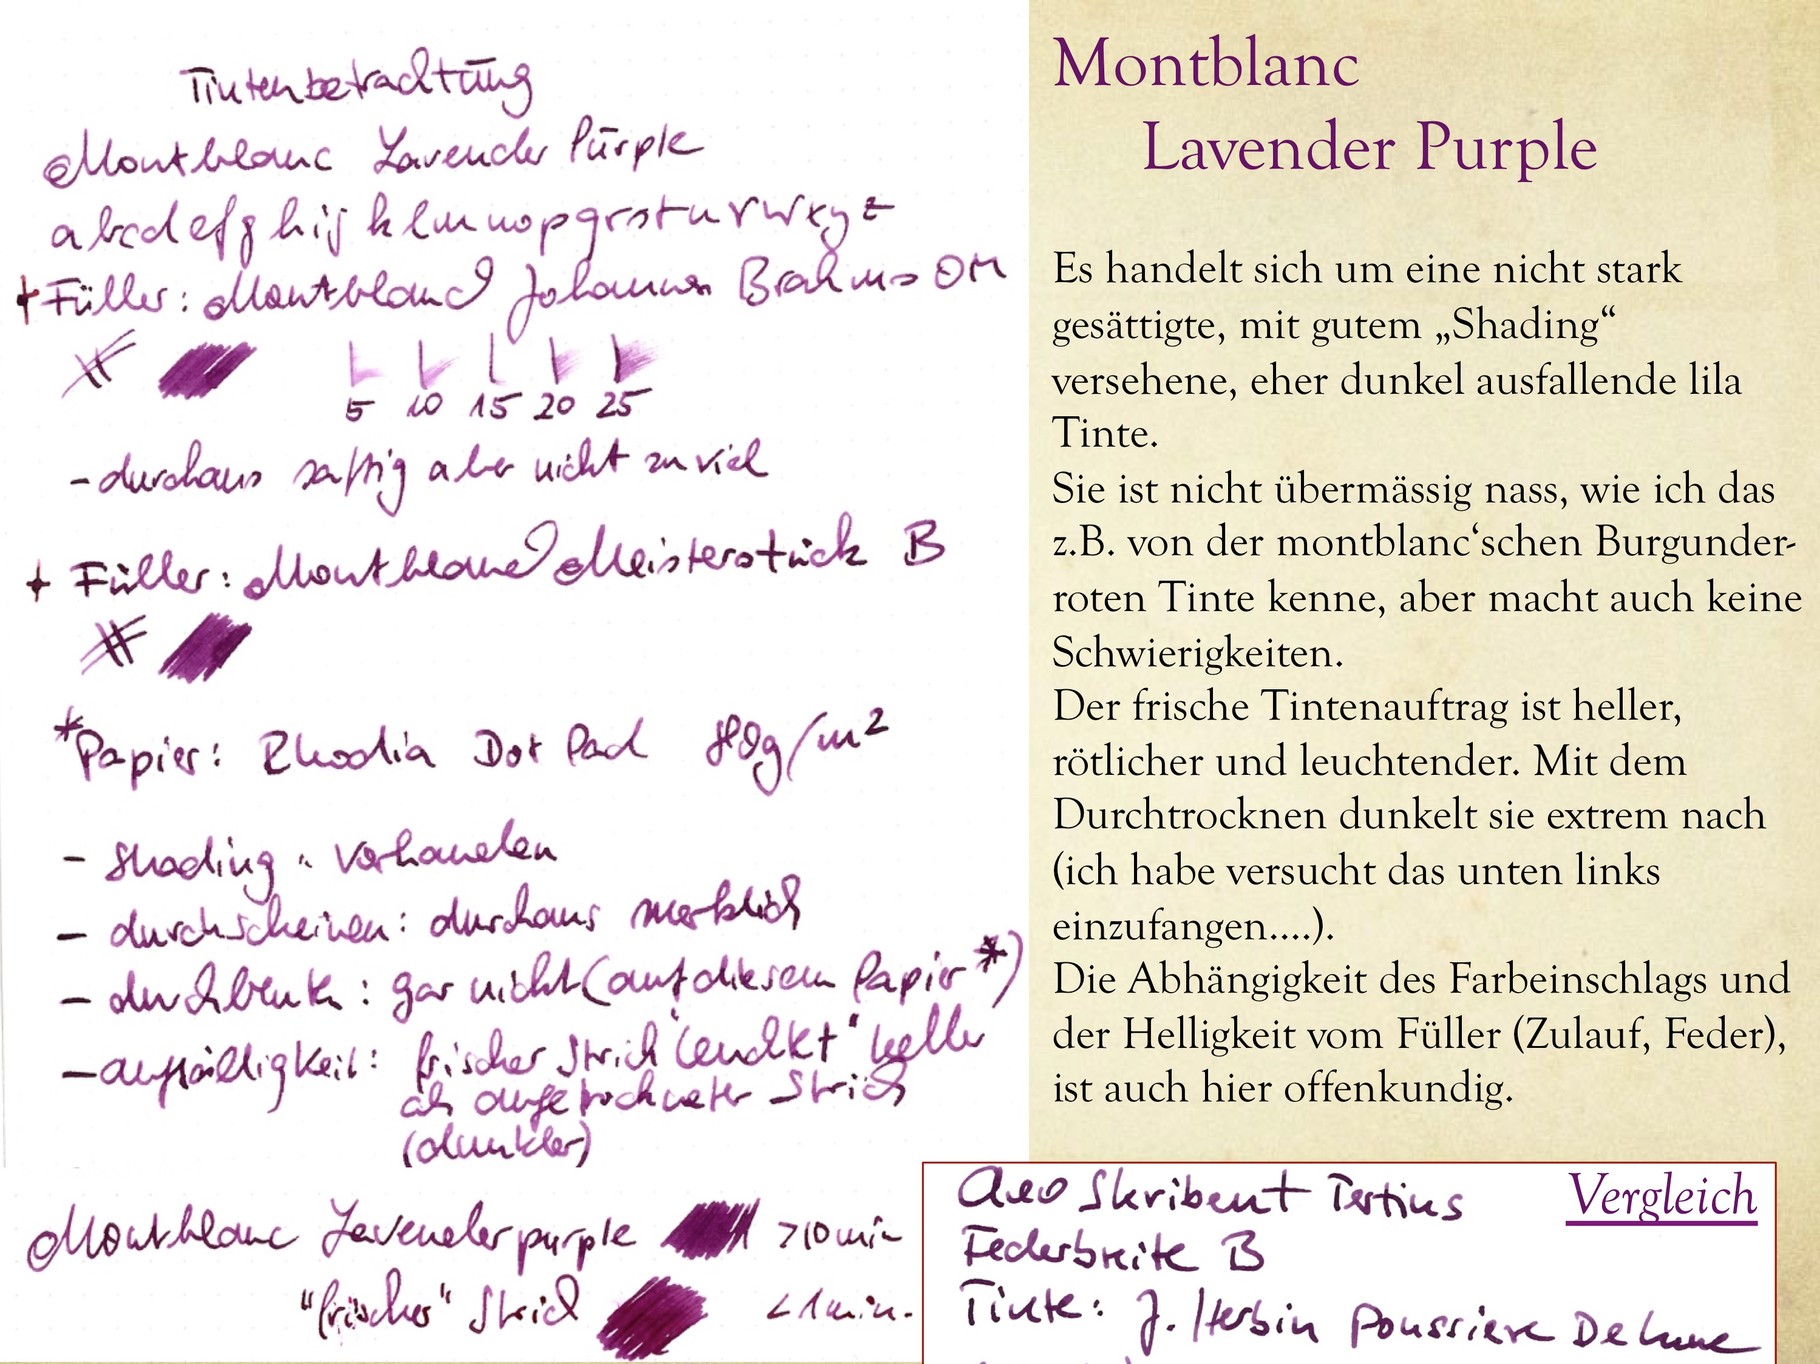 Tintenbetrachtung
Montblanc Lavender Purple
abcdefghijklmnopqrstuvwxyz
+ Füller: Montblanc Johannes Brahms OM
5 10 15 20 25
- durchaus saftig aber nicht zu viel
+ Füller: Montblanc Meisterstück B
*Papier: Rhodia Dot Pad 80g/m²
- Shading: vorhanden
- durchscheinen: durchaus merklich
- durchbluten: gar nicht (auf diesem Papier*)
- auffälligkeit: frischer Strich "leuchtet" heller
als angetrockneter Strich
(dunkler)
Montblanc Lavender purple >10min
"frischer" Strich <1min.
Montblanc
Lavender Purple
Es handelt sich um eine nicht stark
gesättigte, mit gutem „Shading“
versehene, eher dunkel ausfallende lila
Tinte.
Sie ist nicht übermässig nass, wie ich das
z.B. von der montblanc‘schen Burgunder-
roten Tinte kenne, aber macht auch keine
Schwierigkeiten.
Der frische Tintenauftrag ist heller,
rötlicher und leuchtender. Mit dem
Durchtrocknen dunkelt sie extrem nach
(ich habe versucht das unten links
einzufangen....).
Die Abhängigkeit des Farbeinschlags und
der Helligkeit vom Füller (Zulauf, Feder),
ist auch hier offenkundig.
Vergleich
Aeo Skribent Tertius
Federbreite B
Tinte: J. Herbin Poussiere De Lune